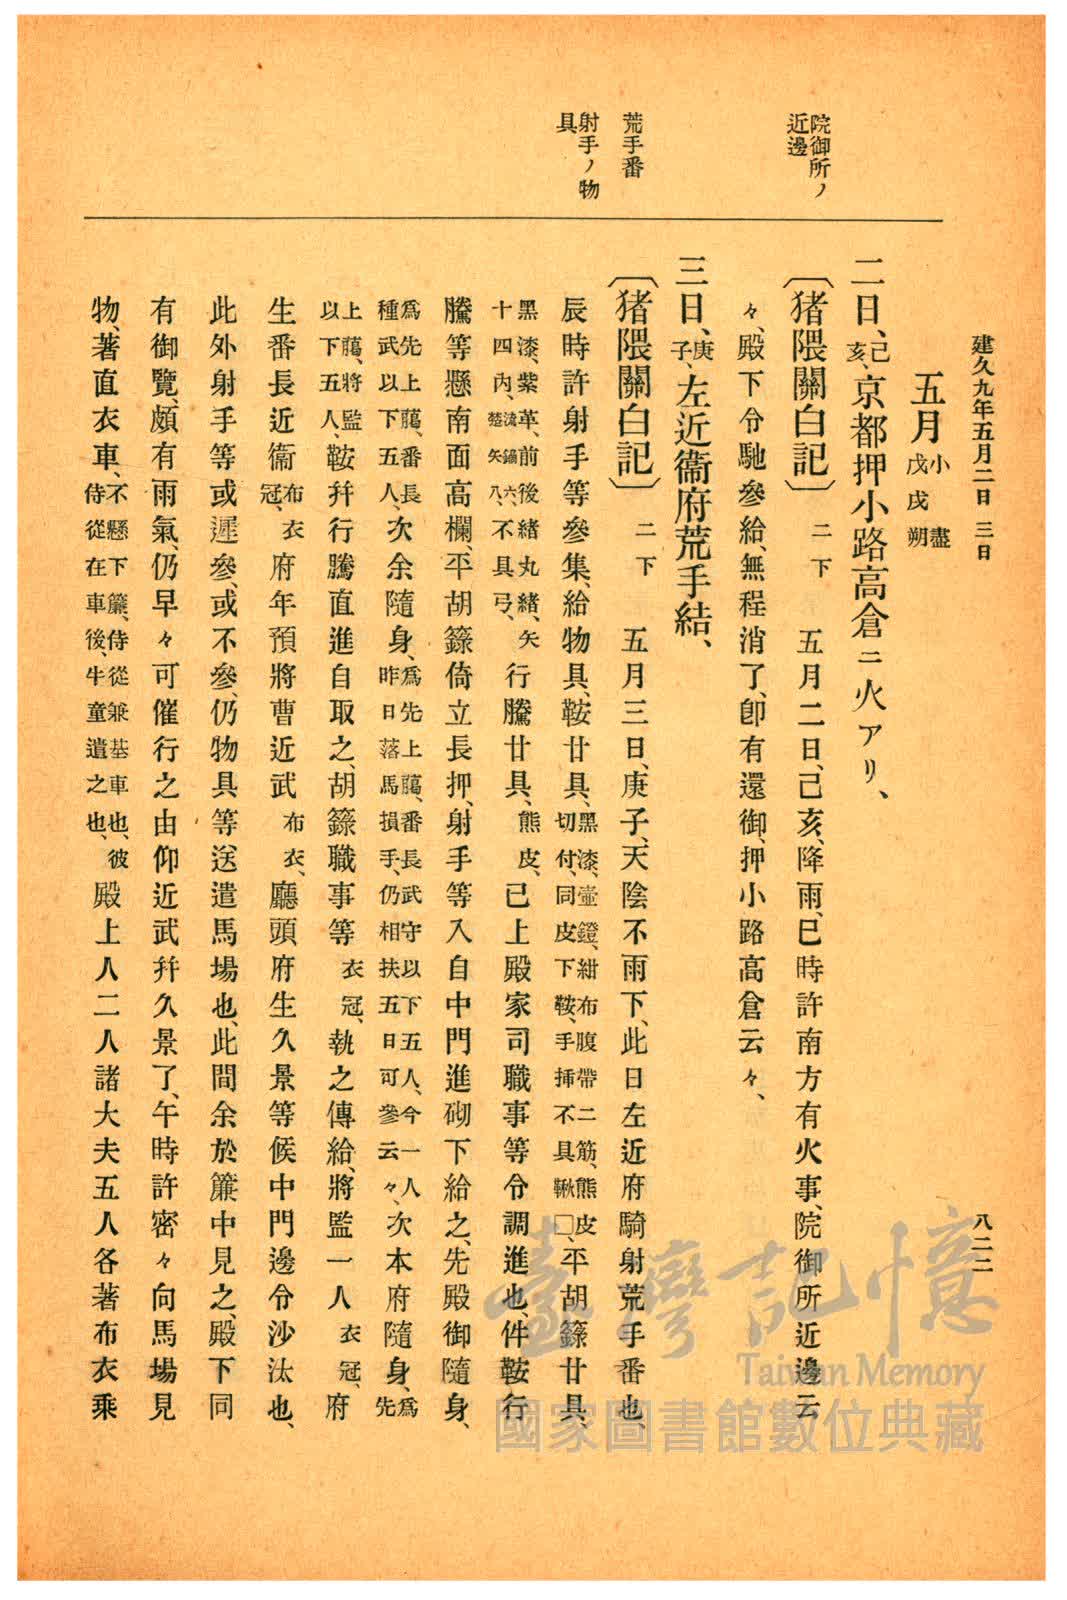 建久九年五月二日 三日
八二二
五月小 盡 戊戌朔
二日、己亥、京都押小路高倉ニ火アリ、
院御所ノ近邊
〔猪隈關白記〕二下 五月二日、己亥、降雨、巳時許南方有火事、院御所近邊云
々、殿下令馳參給、無程消了、卽有還御、押小路高倉云々、
三日、庚子、左近衞府荒手結、
荒手番
〔猪隈關白記〕二下 五月三日、庚子、天陰不雨下、此日左近府騎射荒手番也、
射手ノ物具
辰時許射手等參集、給物具、鞍廿具、黑漆、壷鐙、紺布腹帶二筋、熊皮切付、同皮下鞍、手揷不具鞦□、平胡籙廿具、
黑漆、紫革、前後緖丸緖、矢十四內、流鏑六、楚矢八、不具弓、行騰廿具、熊皮、已上殿家司職事等令調進也、件鞍行
騰等懸南面高欄、平胡籙倚立長押、射手等入自中門進砌下給之、先殿御隨身、
爲先上﨟、番長種武以下五人、次余隨身、爲先上﨟、番長武守以下五人、今一人昨日落馬損手、仍相扶五日可參云々、次本府隨身、爲先
上﨟、將監以下五人、鞍幷行騰直進自取之、胡籙職事等衣冠、執之傳給、將監一人衣冠、府
生番長近衞布衣冠、府年預將曹近武布衣、廳頭府生久景等候中門邊令沙汰也、
此外射手等或遲參、或不參、仍物具等送遣馬場也、此間余於簾中見之、殿下同
有御覽、頗有雨氣、仍早々可催行之由仰近武幷久景了、午時許密々向馬場見
物、著直衣車、不懸下簾、侍從兼基車也、彼侍從在車後、牛童遣之也、殿上人二人諸大夫五人各著布衣乘
臺灣記憶
Taiwan Memory
國家圖書館數位典藏